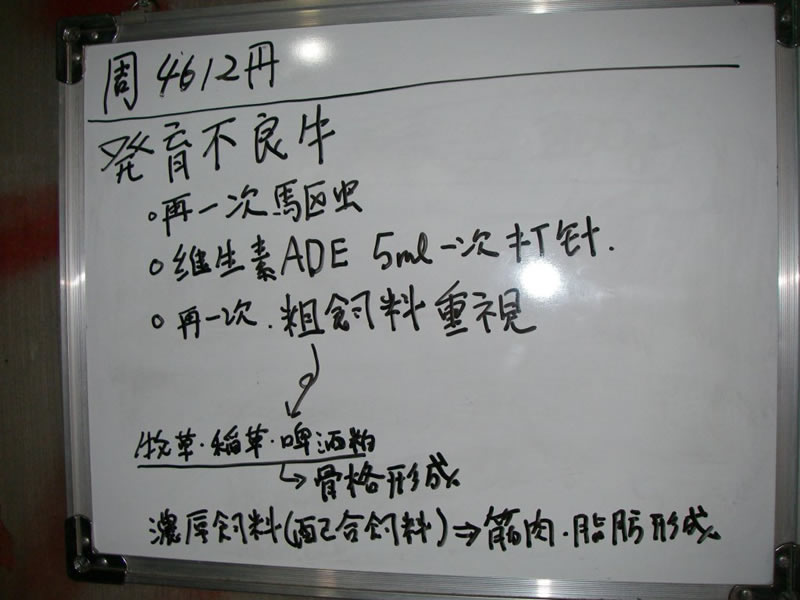 周 4612丹
発育不良牛
○再一次駆虫
○维生素ADE 5ml一次打针.
○再一次.粗飼料重視
牧草・稲草・啤酒粕
↳骨格形成
濃厚飼料(配合飼料)⇒筋肉・脂肪形成